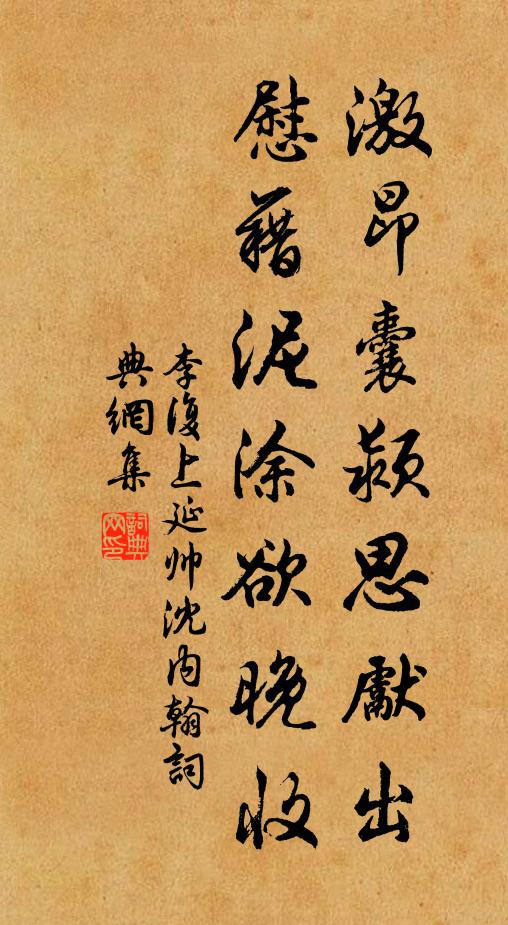 激昂囊颖思獻出
慰藉泥涂欲晚收
李復上延帅沈内翰詞
典網集
詞典网印